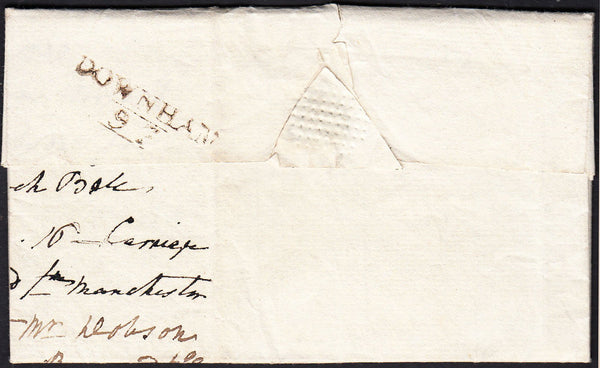 DOWNHAM
97
ch Bill
16 - Carriage
fm Manchester
Mr Dobson